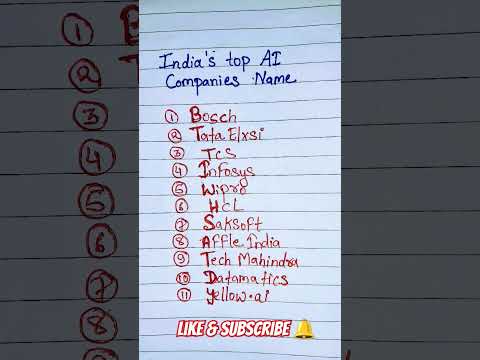 India's top AI
Companies Name
① Bosch
② Tata Elxsi
③ TCS
④ Infosys
⑤ Wipro
⑥ HCL
⑦ Saksoft
⑧ Affle India
⑨ Tech Mahindra
⑩ Datamatics
⑪ Yellow.ai
LIKE & SUBSCRIBE